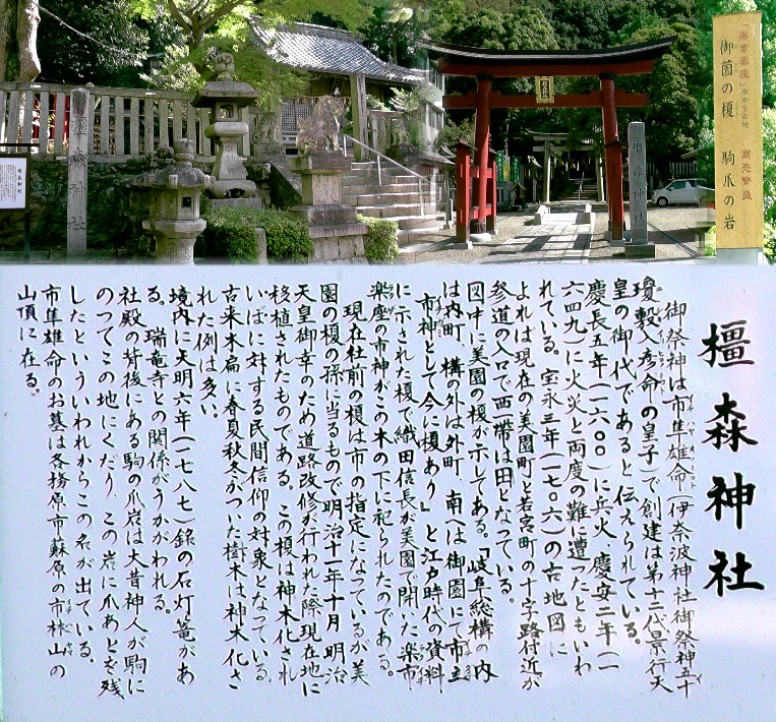 橿森神社
御祭神は市隼雄命(伊奈波神社御祭神五十
瓊敷入彦命の皇子)で創建は第十二代景行天
皇の御代であると伝えられている。
慶長五年(一六〇〇)に兵火 慶安二年(一
六四九)に火災と両度の難に遭ったともいわ
れている。宝永三年(一七〇六)の古地図に
よれば現在の美園町と若宮町の十字路付近が
参道の入口で西一帯は田となっている。
図中に美園の榎が示してある。「岐阜総構の内
は内町、構の外は外町、南へは御園にて市立
市神として今に榎あり』と江戸時代の資料
に示された榎で織田信長が美園で開いた楽市
楽座の市神がこの木の下に祀られたのである。
現在社前の榎は市の指定になっているが美
園の榎の孫に当るもので明治十一年十月 明治
天皇御幸のため道路改修が行われた際現在地に
移植されたものである。この榎は神木化され
いぼに対する民間信仰の対象となっている。
古来木扁に春夏秋冬がついた樹木は神木化さ
れた例は多い。
境内に天明六年(一七八七)銘の石灯篭があ
る。瑞竜寺との関係がうかがわれる。
社殿の背後にある駒の爪岩は大昔神人が駒に
のってこの地にくだり、この岩に爪あとを残
したといういわれからこの名が出ている。
市隼雄命のお墓は各務原市蘇原の市杵山の
山頂に在る。
御薗の榎 駒爪の岩
橿森神社
橿森神社